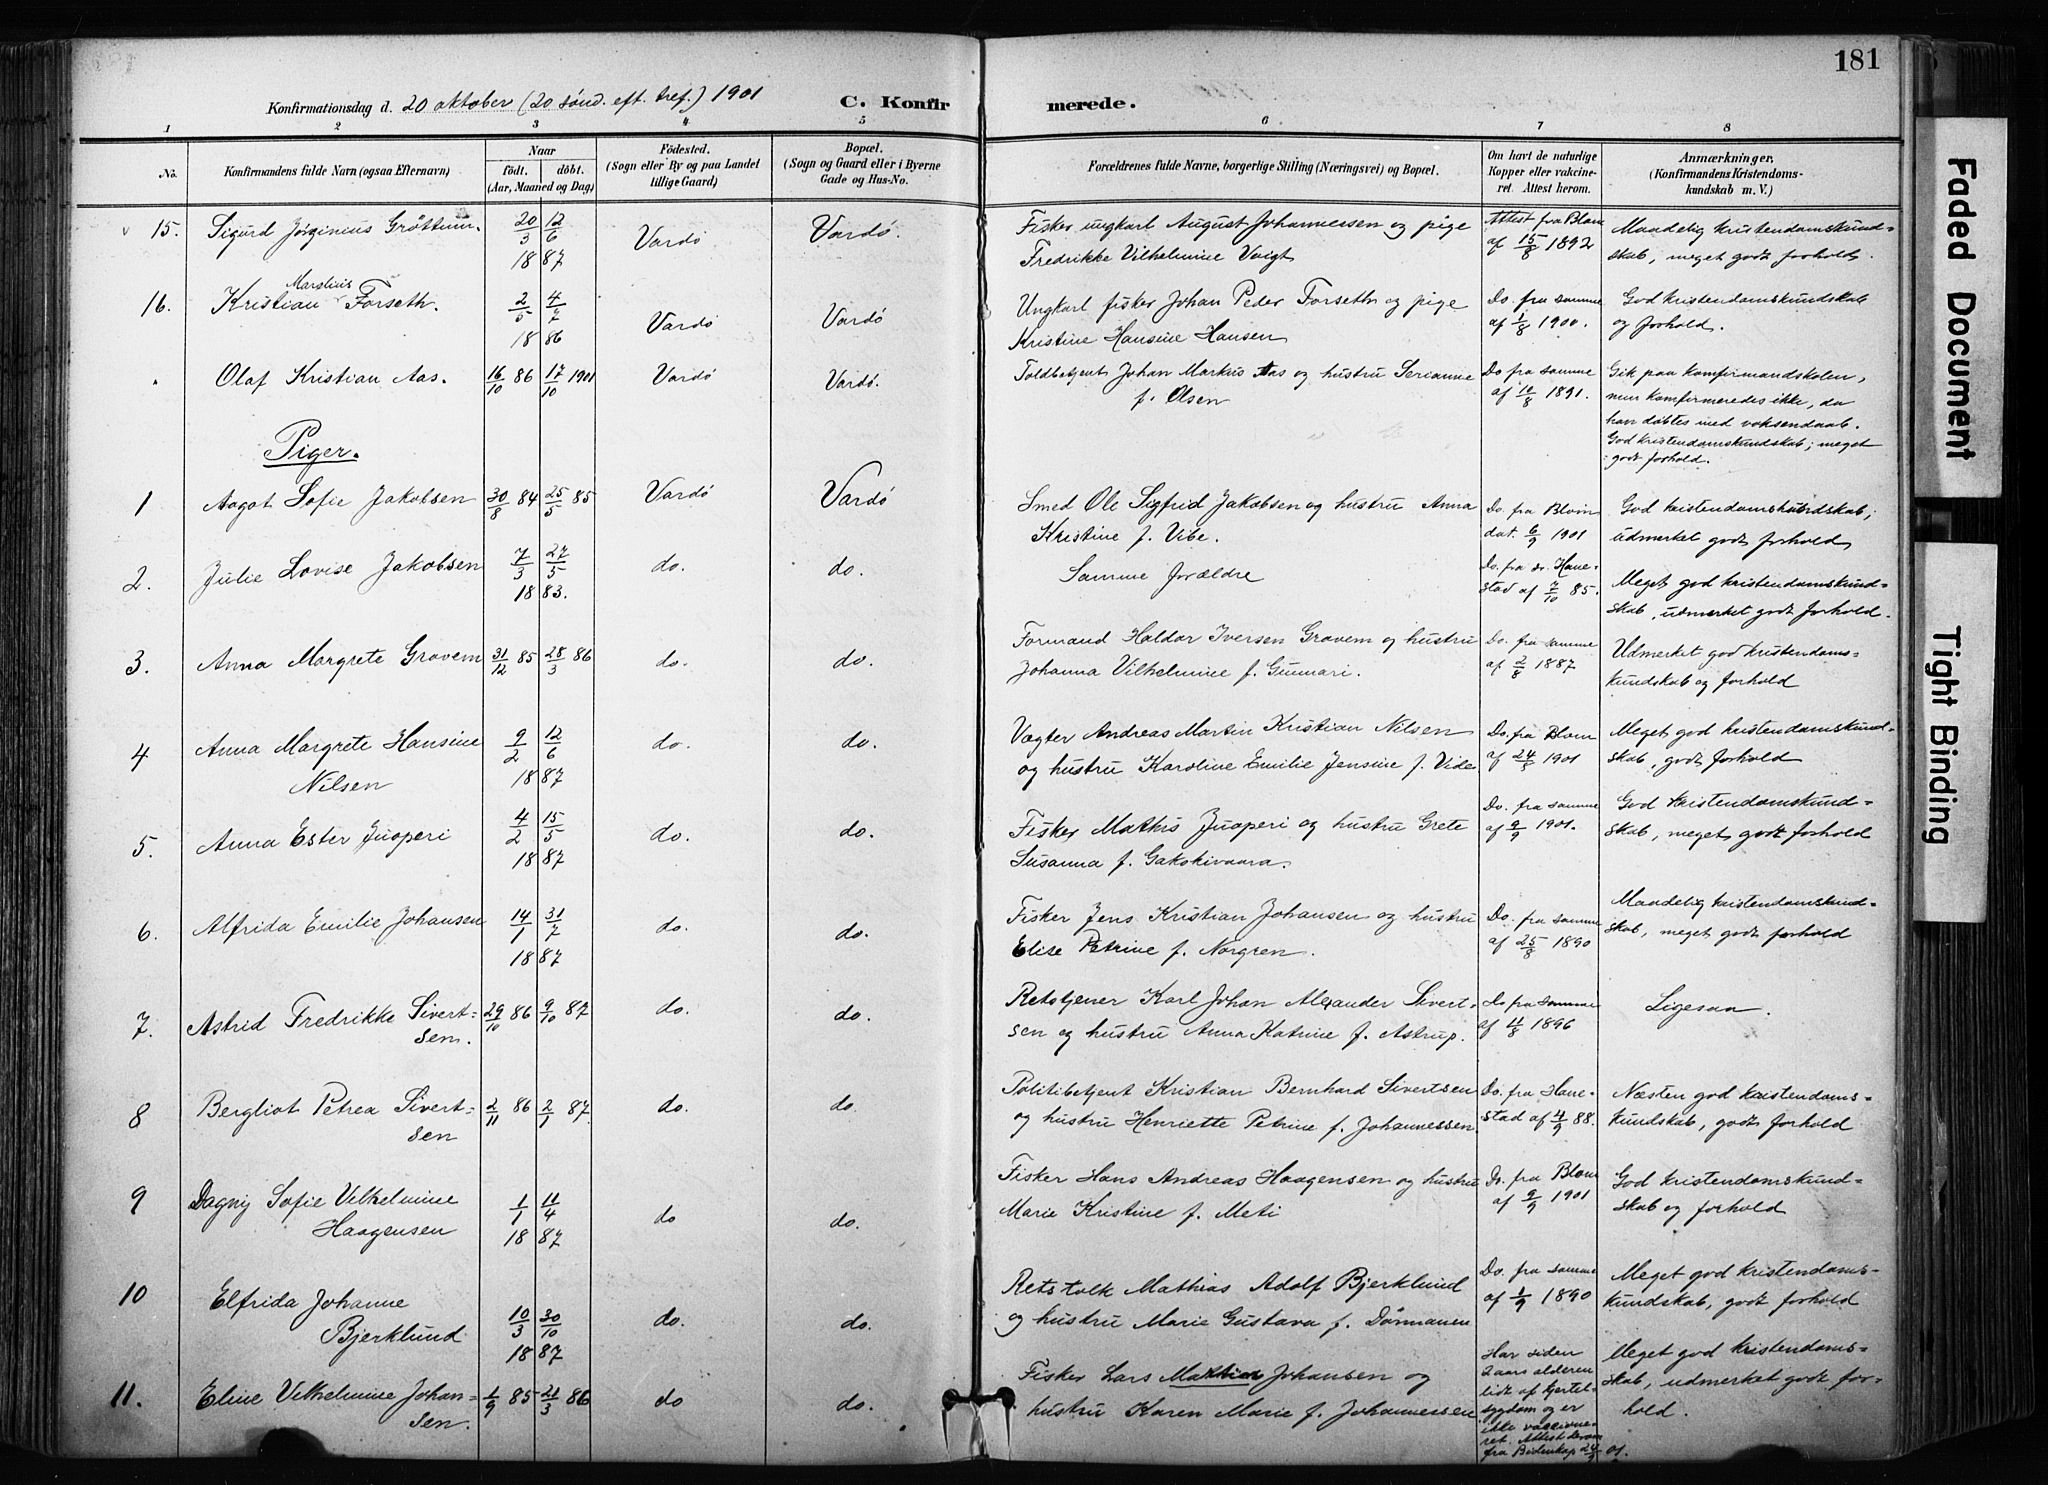 181
Konfirmationsdag d. 20 oktober (20 sönd. eft. tref.) 1901 C. Konfirmerede.
1 2 3 4 5 6 7 8
No. Konfirmandens fulde Navn (ogsaa Efternavn) Naar født. døbt. (Aar, Maaned og Dag) Födested. (Sogn eller By og paa Landet tillige Gaard) Bopæl. (Sogn og Gaard eller i Byerne Gade og Hus-No. Forældrenes fulde Navne, borgerlige Stilling (Næringsvei) og Bopæl. Om havt de naturlige Kopper eller vakcineret. Attest herom. Anmærkninger, (Konfirmandens Kristendomskundskab m. V.)
15. Sigurd Jörginius Gröttum. 20/3 12/6 1887 Vardö Vardö. Fisker ungkarl August Johannessen og pige Fredrikke Vilhelmine Voigt Attest fra Blom af 15/8 1892 Maadelig kristendomskundskab, meget godt forhold.
16. Kristian Marslius Forseth. 2/5 4/7 1886 Vardö Vardö Ungkarl fisker Johan Peder Forseth og pige Kristine Hansine Hansen Do. fra samme af 1/8 1900. God kristendomskundskab og forhold.
Olaf Kristian Aas. 16/10 86 17/10 1901 Vardö Vardö. Toldbetjent Johan Markus Aas og hustru Serianne f. Olsen Do fra samme af 10/8 1891. Gik paa konfirmandskolen, men konfirmeredes ikke, da han döbtes med voksendaab. God kristendomskundskab; meget godt forhold.
Piger.
1 Aagot Sofie Jakobsen 30/8 84 25/5 85 Vardö Vardö Smed Ole Sigfrid Jakobsen og hustru Anna Kristine f. Vibe. Do. fra Blom dat. 6/9 1901 God kristendomskundskab; udmerket godt forhold
2. Julie Lovise Jakobsen 7/3 27/5 1883. do. do. Samme forældre Do. fra dr. Hanestad af 7/10 85. Meget god kristendomskundskab, udmerket godt forhold.
3. Anna Margrete Gravem 31/12 85 28/3 86 do. do. Formand Haldor Iversen Gravem og hustru Johanna Vilhelmine f. Gunnari. Do. fra samme af 2/8 1887 Udmerket god kristendomskundskab og forhold
4 Anna Margrete Hansine Nilsen 9/2 12/6 1887 do. do. Vægter Andreas Martin Kristian Nilsen og hustru Karoline Emilie Jensine f. Vide Do. fra Blom af 24/5 1901 Meget god kristendomskundskab, godt forhold
5. Anna Ester Juoperi 4/2 15/5 1887 do. do. Fisker Mathis Juoperi og hustru Grete Susanna f. Gakokivaara. Do. fra samme af 9/9 1901. God kristendomskundskab, meget godt forhold
6. Alfrida Emilie Johansen 14/1 31/7 1887 do. do. Fisker Jens Kristian Johansen og hustru Elise Petrine f. Norgren. Do. fra samme af 25/8 1890 Maadelig kristendomskundskab, meget godt forhold
7. Astrid Fredrikke Sivertsen. 29/10 86 9/10 87 do. do. Retstjener Karl Johan Alexander Sivertsen og hustru Anna Katrine f. Astrup. Do fra samme af 11/8 1896 Ligesaa.
8 Bergliot Petrea Sivertsen 2/11 86 2/1 87. do. do. Politibetjent Kristian Bernhard Sivertsen og hustru Henriette Petrine f. Johannessen. Do. fra Hanestad af 4/9 88. Næsten god kristendomskundskab, godt forhold
9 Dagny Sofie Vilhelmine Haagensen 1/1 11/4 1887 do do. Fisker Hans Andreas Haagensen og hustru Marie Kristine f. Meti Do. fra Blom af 9/9 1901 God kristendomskundskab og forhold
10 Elfrida Johanne Bjerklund 10/3 30/10 1887 do. do. Retstolk Mathias Adolf Bjerklund og hustru Marie Gustava f. Dörmænen Do. fra samme af 1/9 1890 Meget god kristendomskundskab, godt forhold
11. Eline Vilhelmine Johansen. 1/9 85 21/3 86 do do. Fisker Lars Mathias Johansen og hustru Karen Marie f. Johannessen Har siden 2 aars alderen lidt af kjertelsygdom og er ikke vaccineret. Attest derom fra Bidenkap 24/9 01. Meget god kristendomskab, udmerket godt forhold.
Faded Document
Tight Binding